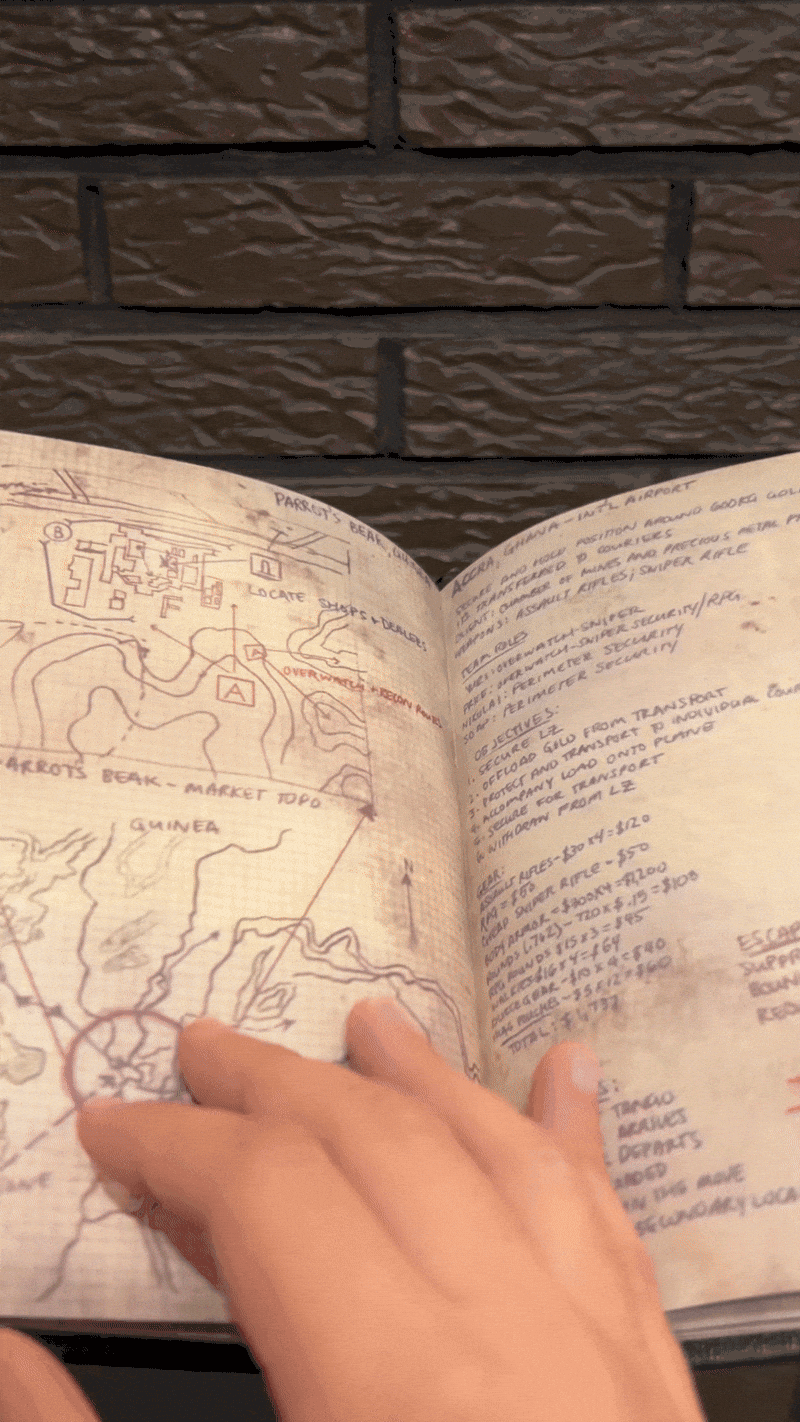 PARROT'S BEAK, GUINEA
B
LOCATE SHOPS + DEALERS
A
OVERWATCH + RECON
A
PARROT'S BEAK - MARKET TOPO
GUINEA
N
ACCRA, GHANA - INT'L AIRPORT
SECURE AND HOLD POSITION AROUND 600KG GOLD
IS TRANSFERRED TO COURIERS
CLIENT: CHAMBER OF MINES AND PRECIOUS METAL
WEAPONS: ASSAULT RIFLES; SNIPER RIFLE
TEAM ROLES
YURI: OVERWATCH-SNIPER
PRICE: OVERWATCH-SNIPER SECURITY/RPG
NIKOLAI: PERIMETER SECURITY
SOAP: PERIMETER SECURITY
OBJECTIVES:
1. SECURE LZ
2. OFFLOAD GOLD FROM TRANSPORT
3. PROTECT AND TRANSPORT TO INDIVIDUAL
4. ACCOMPANY LOAD ONTO PLANE
5. SECURE FOR TRANSPORT
6. WITHDRAW FROM LZ
GEAR:
ASSAULT RIFLES - $30 X 4 = $120
RPG = $50
CHEAP SNIPER RIFLE - $50
BODY ARMOR = $300X4 = $1,200
ROUNDS (.762) - 720 X $.15 = $108
RPG ROUNDS $15 X 3 = $45
WALKIES $16 X 4 = $64
GEAR - $10 X 4 = $40
MAG POUCHES - $5 X 12 = $60
TOTAL: $1,737
TANGO
ARRIVES
DEPARTS
IN THE MOVE
SECONDARY